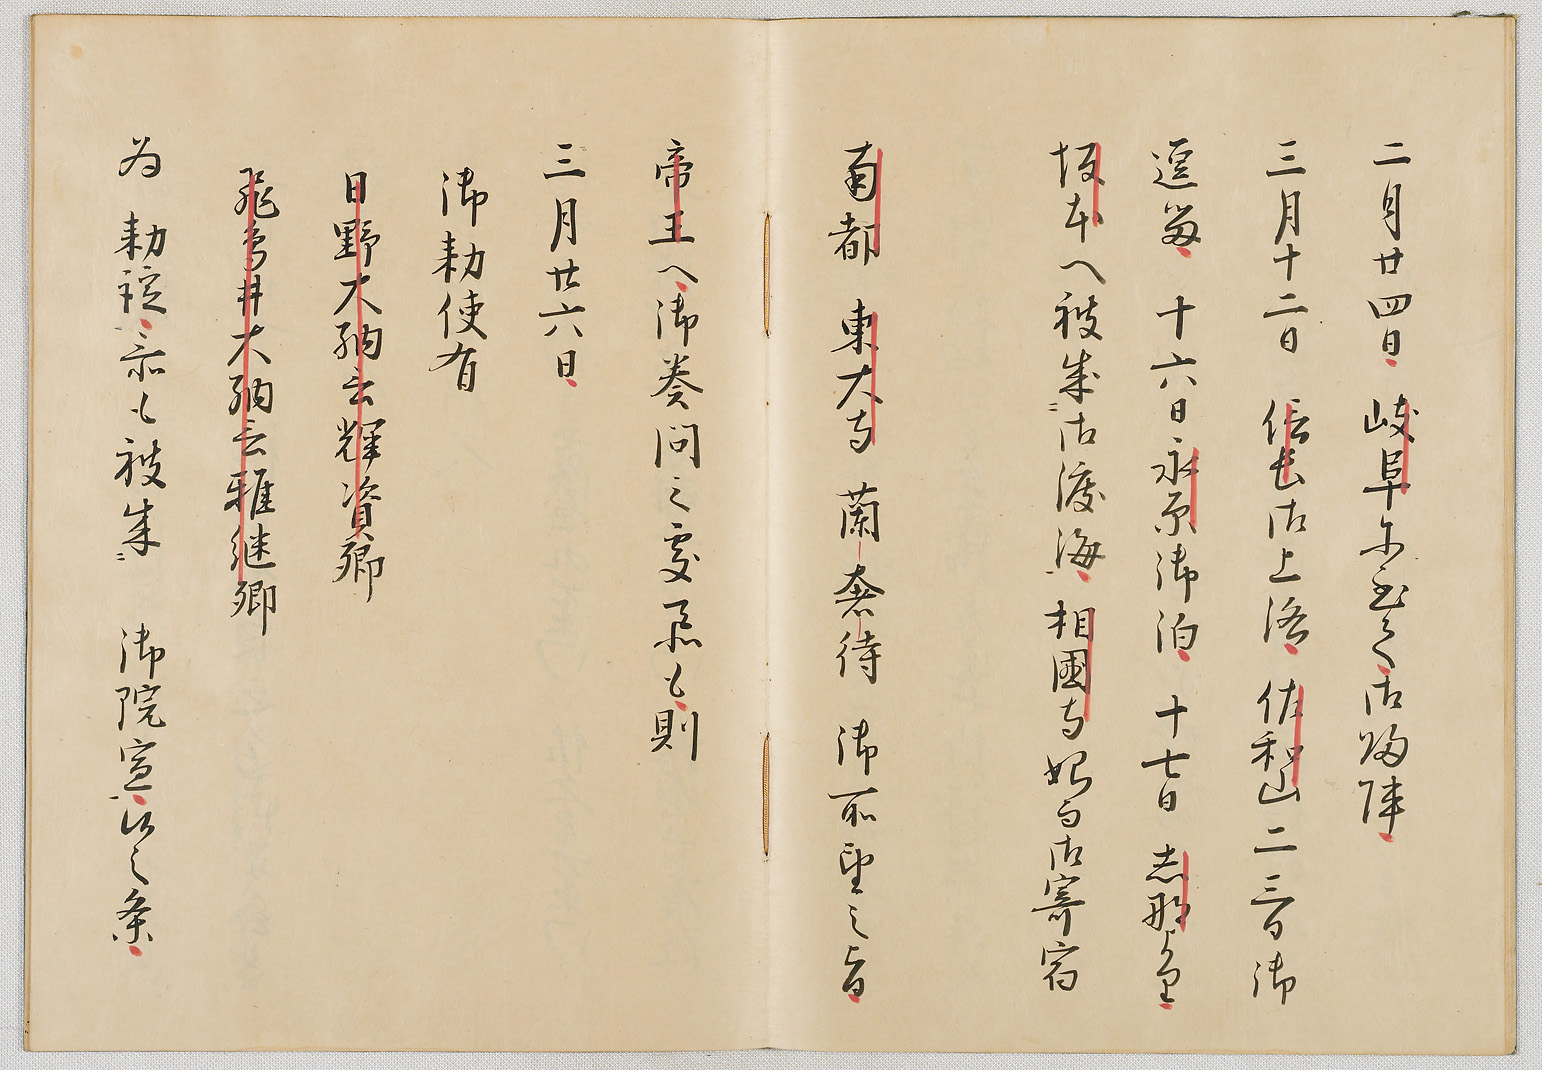 二月廿四日岐阜に至て御帰陣
三月十二日信長御上洛佐和山二三日御
逗留十六日永原御泊十七日志那より
坂本へ被成御渡海相國寺始而御寄宿
南都東大寺蘭奢待御所望之旨
帝王へ御奏問之處忝も則
三月廿六日
御勅使有
日野大納言輝資卿
飛鳥井大納言雅継卿
為勅諚忝も被成御院宣候之条